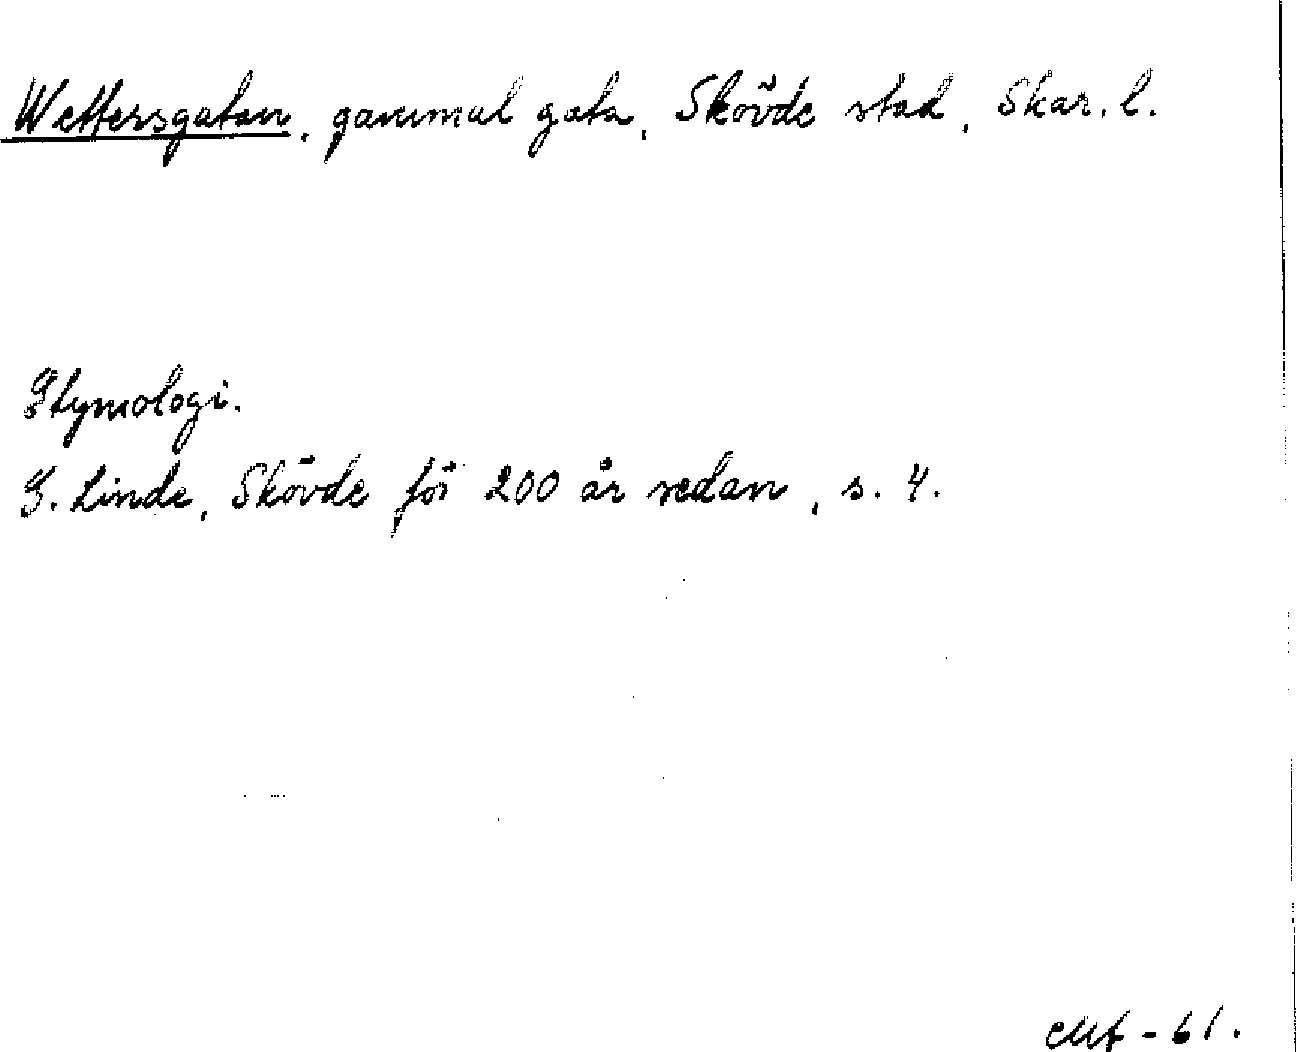 Wettersgatan, gammal gata, Skövde stad, Skar. l.
Etymologi.
G. Linde, Skövde för 200 år sedan, s. 4.
-61.